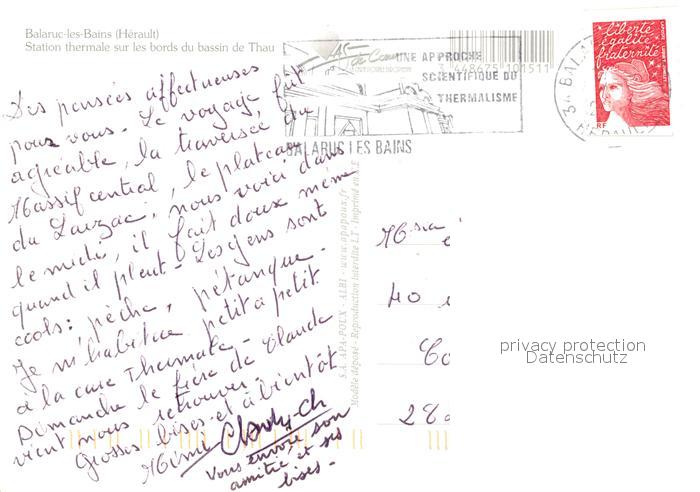 Balaruc-les-Bains (Hérault)
Station thermale sur les bords du bassin de Thau
Des pensées affectueuses
pour vous - Le voyage fut
agréable, la traversée du
Massif central, le plateau
du Larzac, nous voici dans
le midi, il fait doux même
quand il pleut - Les gens sont
cools : pêche, pétanque -
Je m'habitue petit à petit
à la cure Thermale -
Demain le frère de Claude
vient nous retrouver
Grosses bises et à bientôt
Mimi
Vous envoie son
amitié et ses
bises -
UNE APPROCHE
SCIENTIFIQUE DU
THERMALISME
BALARUC LES BAINS
3 448675 101511
34 BALA
HERAULT
liberté
égalité
fraternité
RF
S.A. APA-POUX - ALBI - www.apapoux.fr
Modèle déposé - Reproduction interdite LT - Imprimé en CEE
40
280
privacy protection
Datenschutz